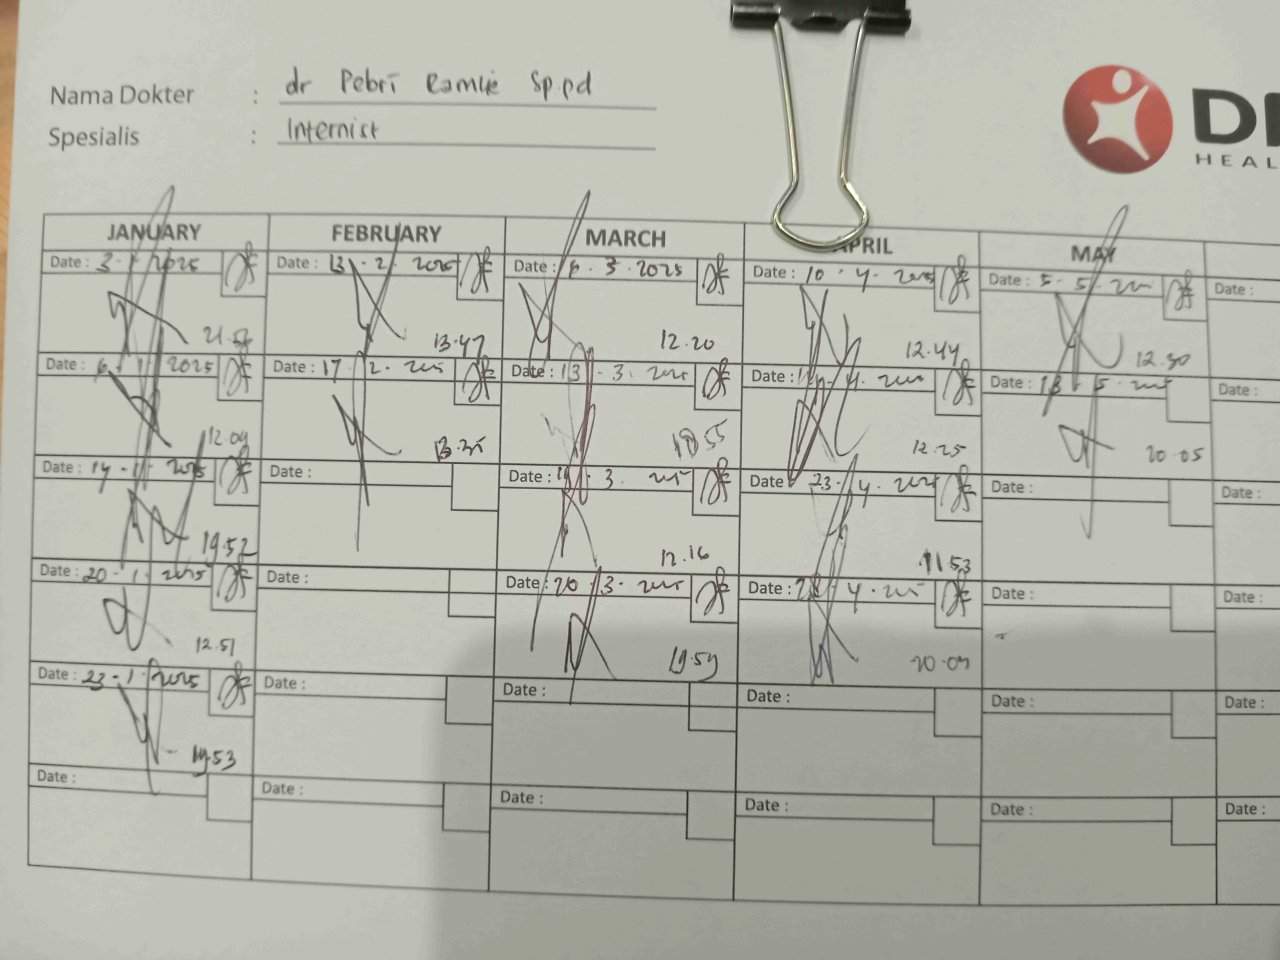 Nama Dokter : dr Pebri Ramlie Sp.pd
Spesialis : Internist
HEAL
JANUARY FEBRUARY MARCH APRIL MAY
Date : 3 - 1 - 2025 Date : 13 - 2 - 2025 Date : 6 - 3 - 2025 Date : 10 - 4 - 2025 Date : 5 - 5 - 2025 Date :
13.47 12.20 12.44 12.30
Date : 6 - 1 - 2025 Date : 17 - 2 - 2025 Date : 13 - 3 - 2025 Date : - 4 - 2025 Date : 13 - 5 - 2025 Date :
12.09 12.25 20.05
Date : 14 - 1 - 2025 Date : Date : - 3 - 2025 Date : 23 - 4 - 2025 Date : Date :
19.52 12.16 11.53
Date : 20 - 1 - 2025 Date : Date : 20 - 3 - 2025 Date : 28 - 4 - 2025 Date : Date :
12.51 19.59 20.09
Date : 23 - 1 - 2025 Date : Date : Date : Date : Date :
19.53
Date : Date : Date : Date : Date : Date :